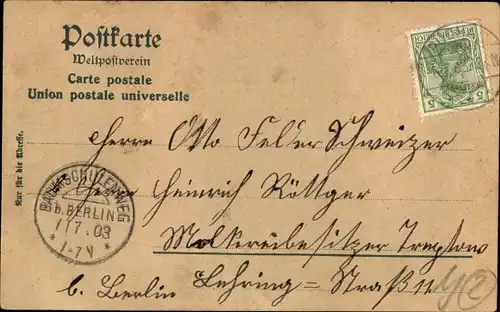 Postkarte
Weltpostverein
Carte postale
Union postale universelle
Nur für die Adresse.
Herrn Otto Felder Schweizer
Herrn Heinrich Röttger
Molkereibesitzer Treptow
b. Berlin Lehring=Straße 11
BAUMSCHULENWEG
b. BERLIN
17.03
1-7V
5 5